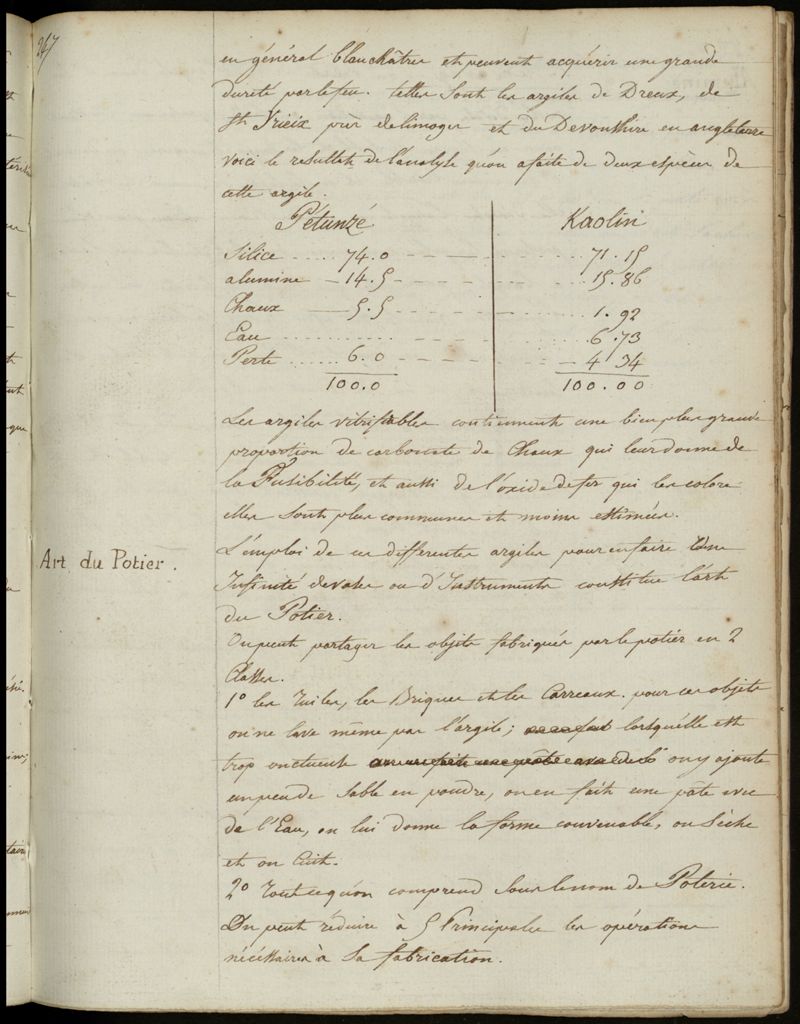 247
en général blanchâtres et peuvent acquérir une grande
dureté par le feu. telles sont les argiles de Dreux, de
St Yrieix près de limoges et du Devonshire en angleterre
Voici le resultat de l'analyse qu'on a faite de deux espèces de
cette argile.
Pétunzé Kaolin
Silice ..... 74.0 - - - - - 71.15
alumine - 14.5 - - - - - 15.86
Chaux — 5.5 - - - - 1.92
Eau ............ 6.73
Perte ...... 6.0 - - - - 4 34
100.0 100.00
Les argiles vitrifiables contiennent une bien plus grande
proportion de carbonate de Chaux qui leur donne de
la Fusibilité, et aussi de l'oxide de fer qui les colore
elles sont plus communes et moins estimées.
Art du Potier.
L'emploi de ces differentes argiles pour en faire Une
Infinité de vases ou d'Instruments constitue l'art
du Potier.
On peut partager les objets fabriqués par le potier en 2
Classes.
1º les Tuiles, les Briques et les Carreaux. pour ces objets
on ne lave même pas l'argile; lorsqu'elle est
trop onctueuse on y ajoute
un peu de sable en poudre, on en fait une pâte avec
de l'Eau, on lui donne la forme convenable, on Sèche
et on Cuit.
2º Tout ce qu'on comprend sous le nom de Poterie.
On peut réduire à 5 Principales les opérations
nécéssaires à Sa fabrication.